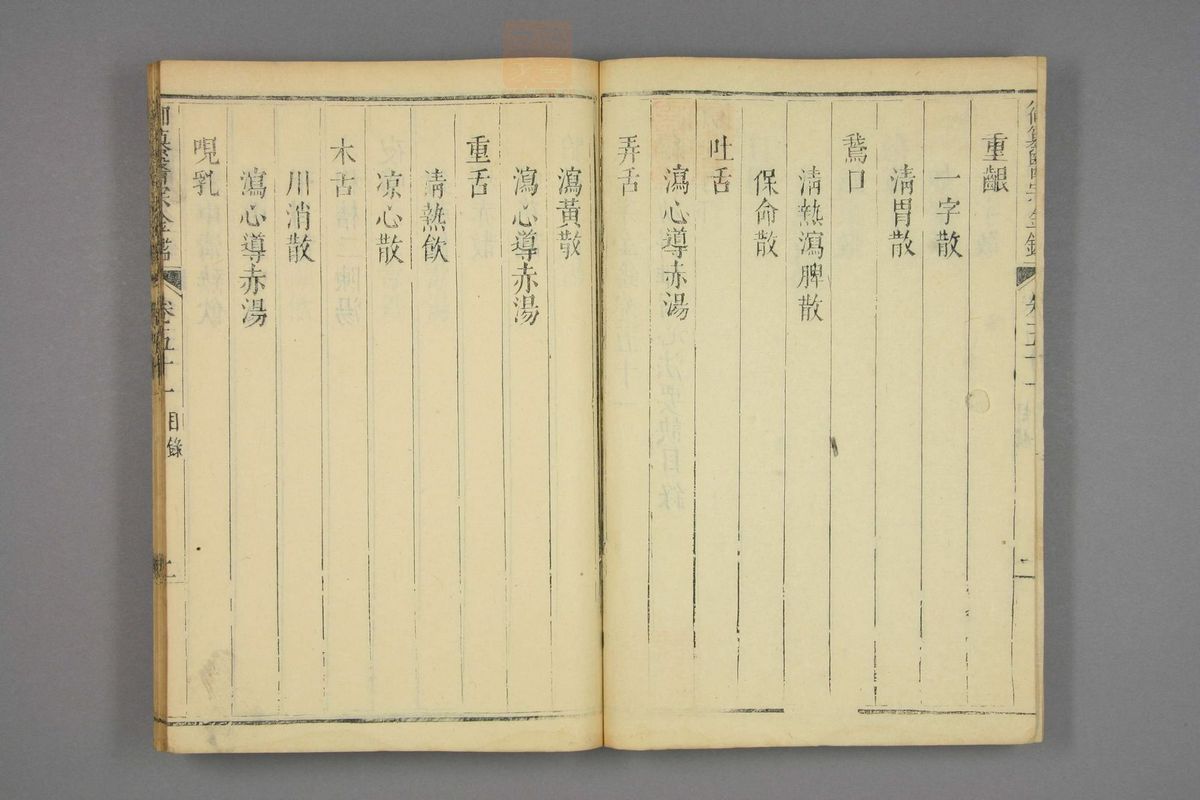 御纂醫宗金鑑 卷五十一 二
重齦
一字散
清胃散
鵞口
清熱瀉脾散
保命散
吐舌
瀉心導赤湯
弄舌
瀉黃散
瀉心導赤湯
重舌
清熱飲
凉心散
木舌
川消散
瀉心導赤湯
哯乳
御纂醫宗金鑑 卷五十一 目錄